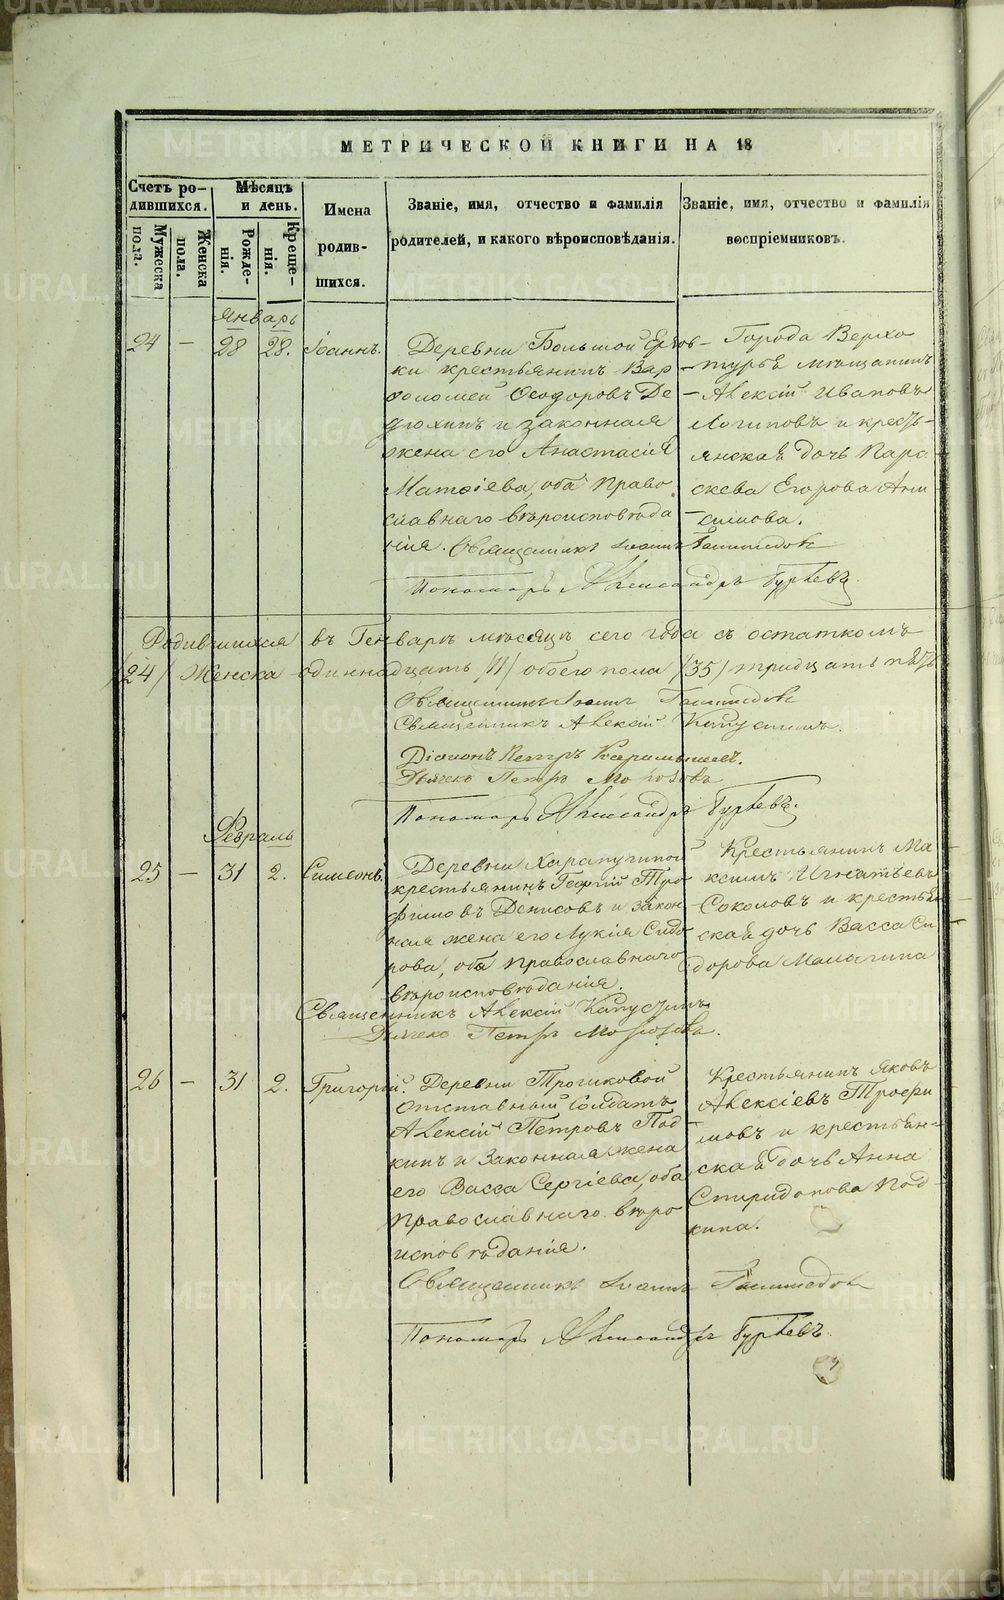 МЕТРИЧЕСКОЙ КНИГИ НА 18
Счетъ ро-
дившихся.
Мужеска
пола.
Женска
пола.
Мѣсяцъ
и день.
Рожде-
нія.
Креще-
нія.
Имена
родив-
шихся.
Званіе, имя, отчество и фамилія
родителей, и какого вѣроисповѣданія.
Званіе, имя, отчество и фамилія
воспріемниковъ.
Январь
24 — 28 28. Іоаннъ.
Деревни Большой
ки крестьянинъ Вар
ѳоломей Ѳеодоровъ Де
рюхинъ и законная
жена его Анастасія
Матѳіева, оба право
славнаго вѣроисповѣда
нія. Священникъ Іоаннъ
Пономарь Александръ Гурьевъ.
Города Верхо
турья мѣщанинъ
Алексій Ивановъ
Логиновъ и кресть-
янская дочь Пара
скева Егорова Ани
симова.
Родившихся въ Генварѣ мѣсяцѣ сего года съ остаткомъ
/24/ Женска одиннадцать /11/ обоего пола /35/ тридцать пять
Священникъ Іоаннъ
Священникъ Алексій Капустинъ.
Діаконъ Петръ
Дьячекъ Петръ Морозовъ
Пономарь Александръ Гурьевъ.
Февраль
25 — 31 2. Симеонъ.
Деревни
крестьянинъ Георгій Тро
фимовъ Денисовъ и закон
ная жена его Лукія Сидо
рова, оба православнаго
вѣроисповѣданія.
Крестьянинъ Ма
ксимъ Игнатьевъ
Соколовъ и крестьян
ская дочь Васса Си
дорова Малыгина
Священникъ Алексій Капустинъ
Дьячекъ Петръ Морозовъ.
26 — 31 2. Григорій.
Деревни
отставный солдатъ
Алексій Петровъ Под
кинъ и законная жена
его Васса Сергіева, оба
православнаго вѣро
исповѣданія.
Крестьянинъ Яковъ
Алексіевъ Трофи
мовъ и крестьян-
ская дочь Анна
Спиридонова Под-
кина.
Священникъ Іоаннъ
Пономарь Александръ Гурьевъ.
METRIKI.GASO-URAL.RU